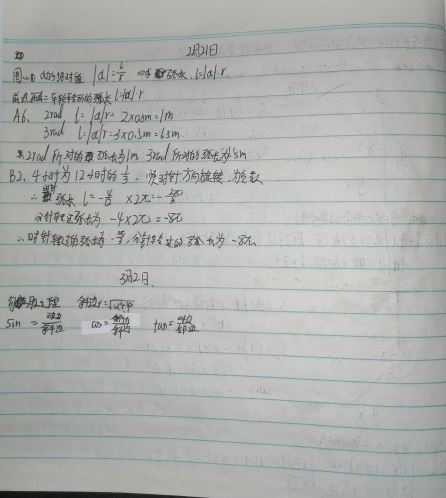 2月21日
圆心角α的绝对值 |α|=l/r ⇒ 弧长 l=|α|r
前进距离=车轮转动的弧长 l=|α|r
A6、2rad l=|α|r=2×0.5m=1m
3rad l=|α|r=3×0.5m=1.5m
∴2rad所对的弧长为1m 3rad所对的弧长为1.5m
B2、4小时为12小时的1/3,顺时针方向旋转,为负数
∴弧长 l=-4/12×2π=-2π/3
分针转过弧长为 -4×2π=-8π
∴时针转过的弧长为-2π/3,分针转过的弧长为-8π
3月2日
勾股定理 斜边r=
sin =对边/斜边 cos=邻边/斜边 tan=对边/邻边